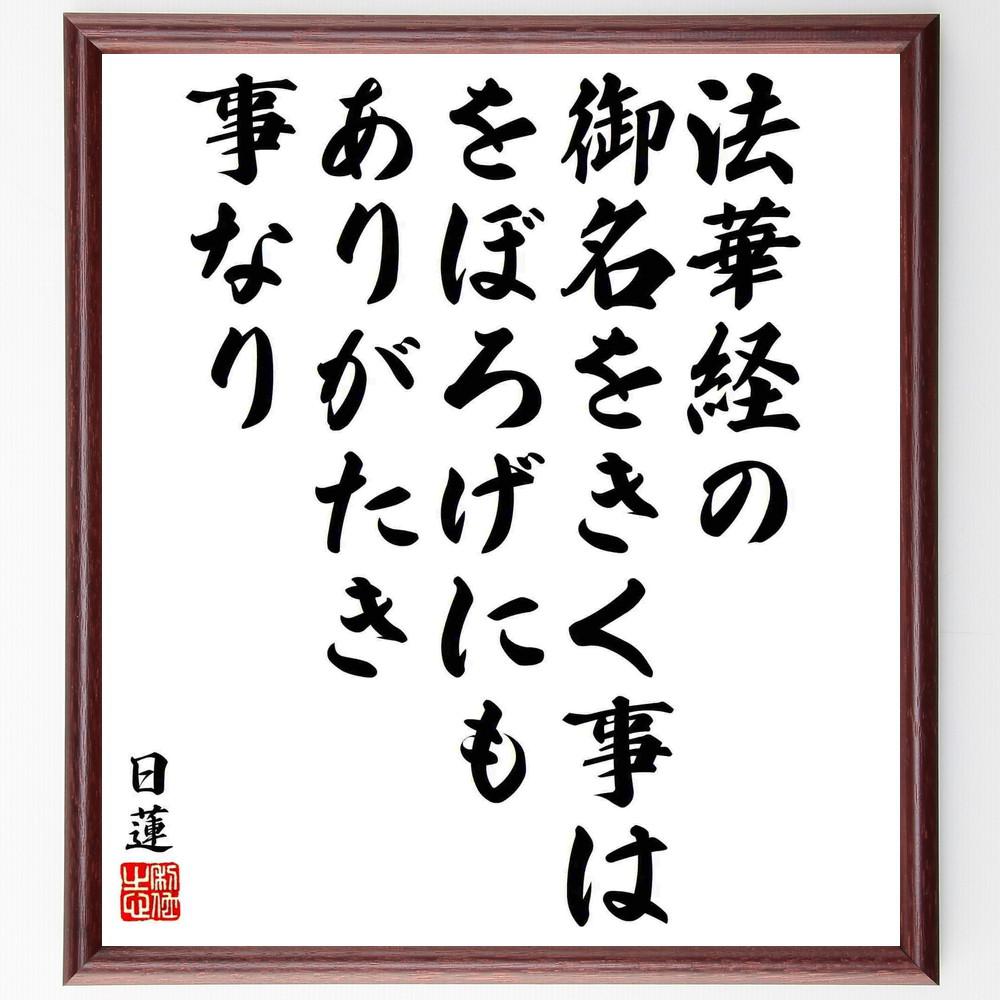 法華経の
御名をきく事は
をぼろげにも
ありがたき
事なり
日蓮